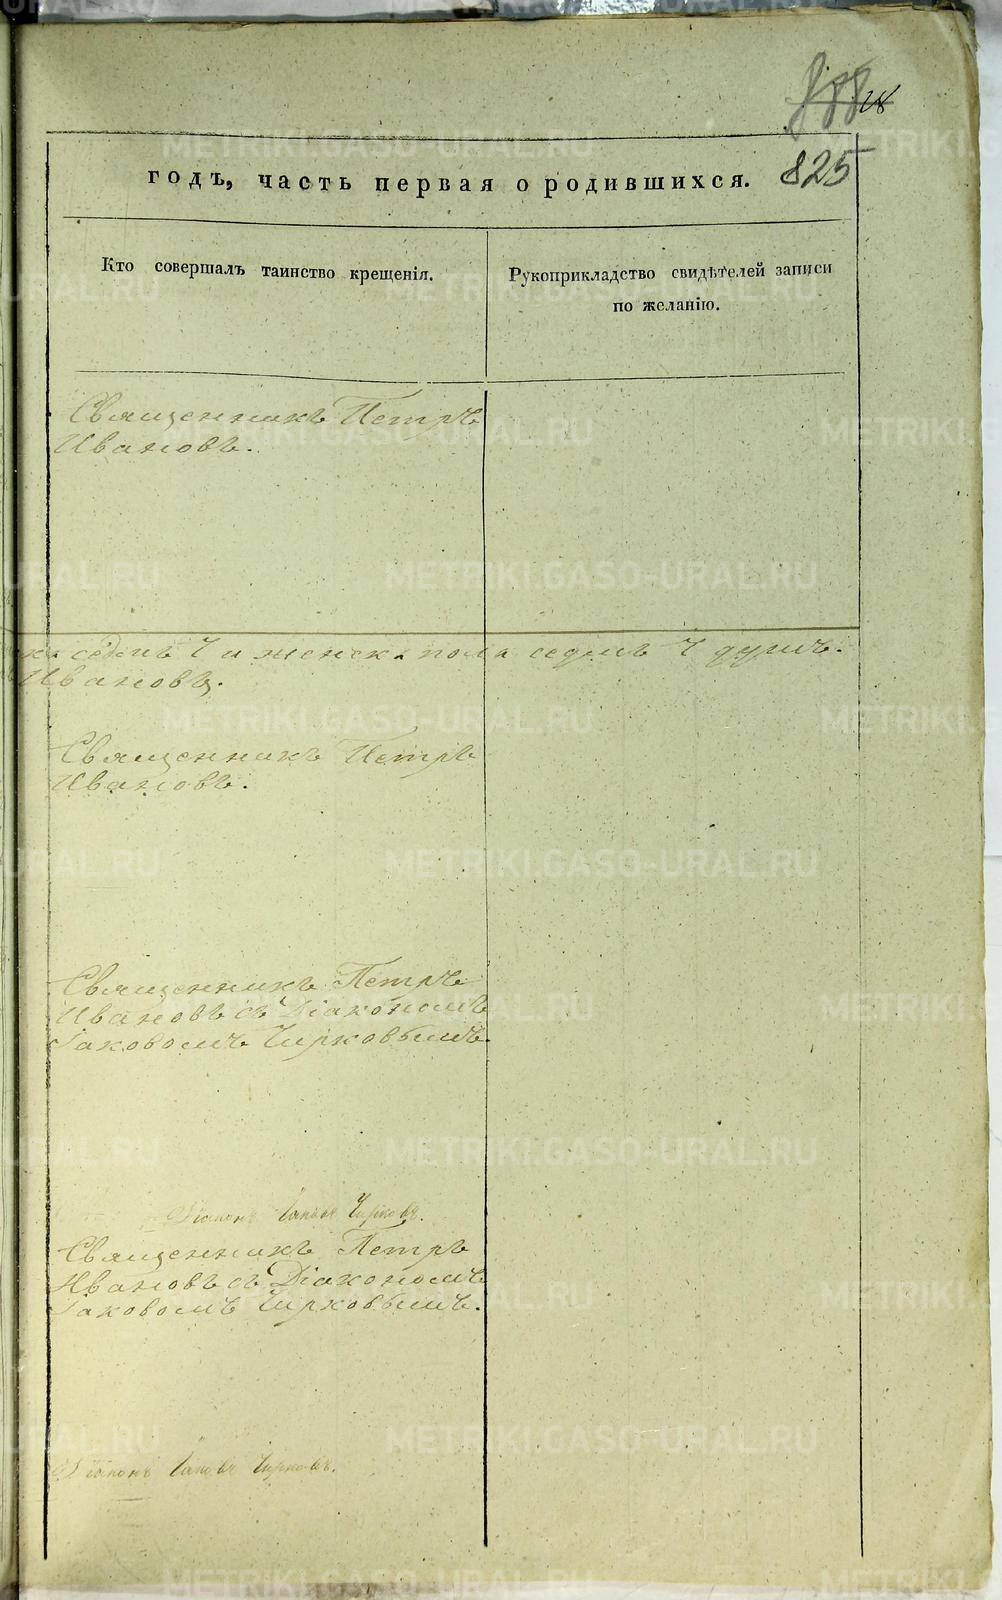 825
годъ, часть первая о родившихся.
Кто совершалъ таинство крещенія.
Рукоприкладство свидѣтелей записи
по желанію.
Священникъ Петръ
Ивановъ.
седмь 7 и женск. пола седмь 7 душъ.
Ивановъ.
Священникъ Петръ
Ивановъ.
Священникъ Петръ
Ивановъ съ Діакономъ
Іаковомъ Чирковымъ.
Діаконъ Іаковъ Чирковъ.
Священникъ Петръ
Ивановъ съ Діакономъ
Іаковомъ Чирковымъ.
Діаконъ Іаковъ Чирковъ.
METRIKI.GASO-URAL.RU